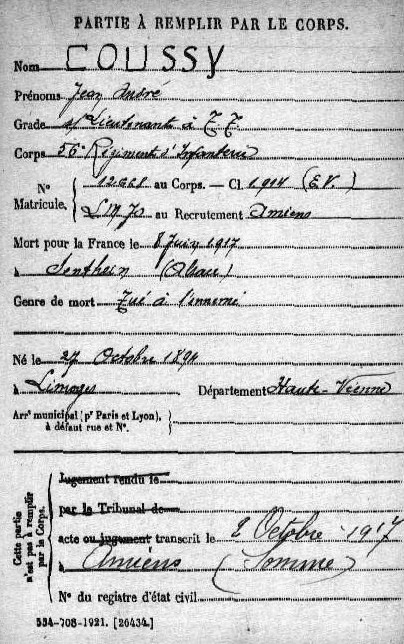 PARTIE À REMPLIR PAR LE CORPS.
Nom COUSSY
Prénoms Jean André
Grade s/Lieutenant à T.T.
Corps 56e Régiment d'Infanterie
No Matricule.
au Corps. — Cl 1914 (E.V.)
au Recrutement Amiens
Mort pour la France le 8 Juin 1917
à Sentheim (Alsace)
Genre de mort Tué à l'ennemi
Né le 27 Octobre 1894
à Limoges Département Haute-Vienne
Arrt municipal (pr Paris et Lyon),
à défaut rue et No.
Cette partie n'est pas à remplir par le Corps.
Jugement rendu le
par le Tribunal de
acte ou jugement transcrit le 2 Octobre 1917
à Amiens (Somme)
No du registre d'état civil
534-708-1921. [26434.]